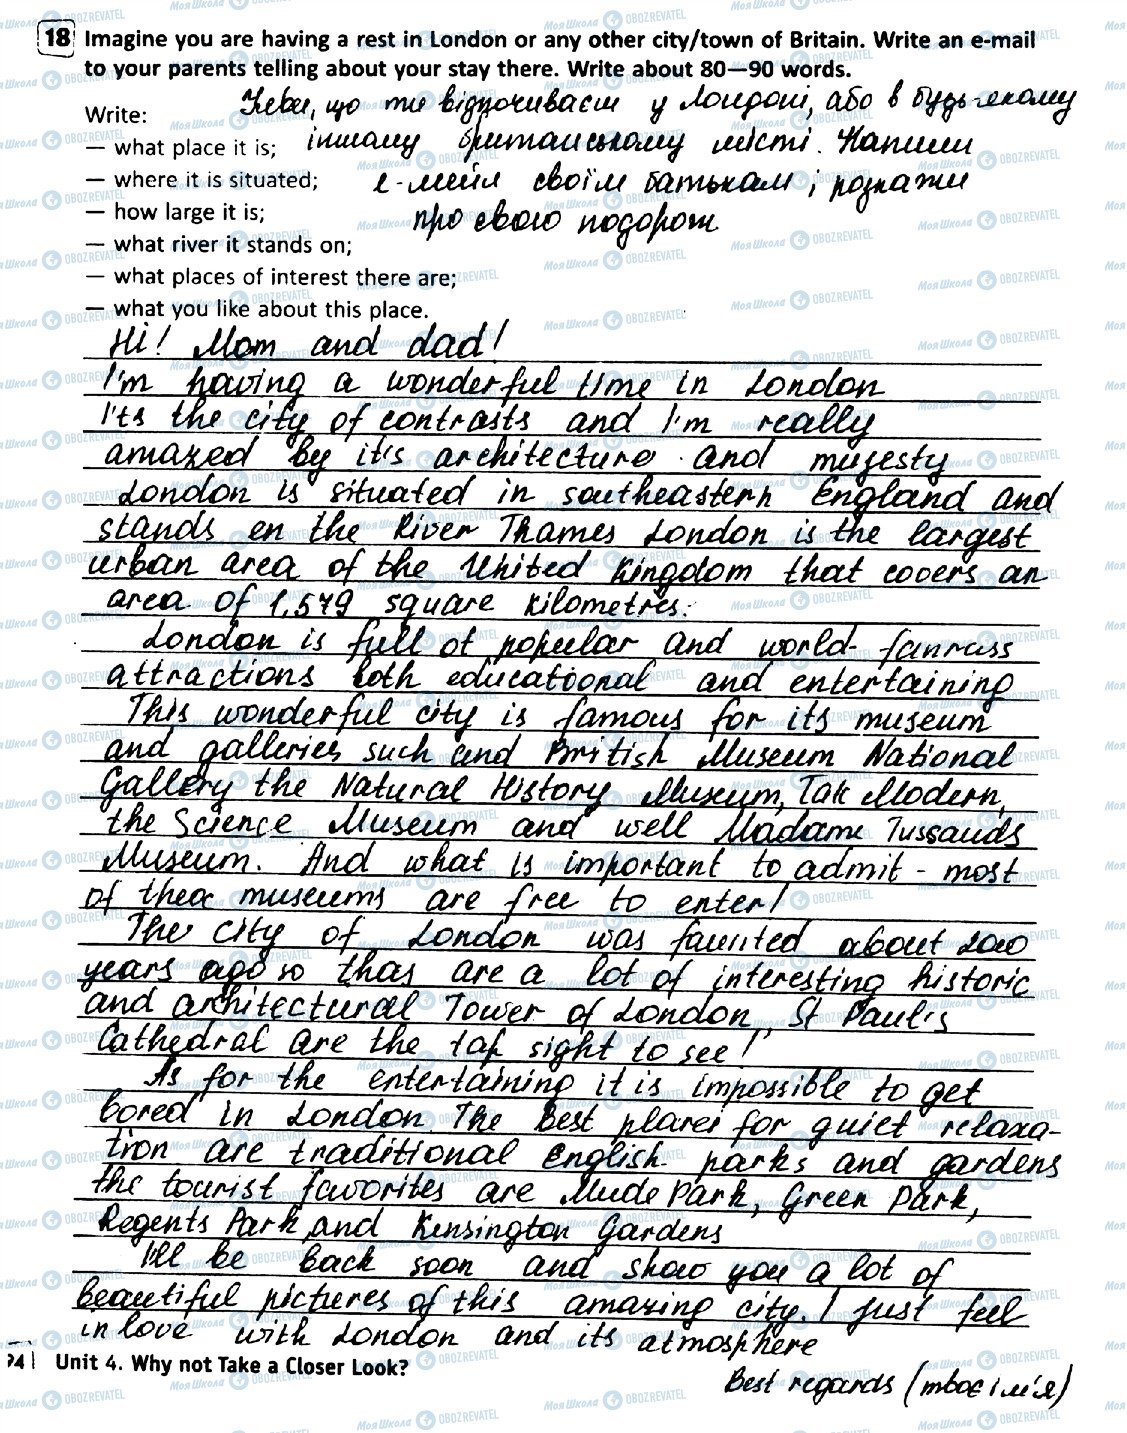 18 Imagine you are having a rest in London or any other city/town of Britain. Write an e-mail
to your parents telling about your stay there. Write about 80—90 words.
Уяви, що ти відпочиваєш у Лондоні, або в будь-якому
Write:
— what place it is; іншому британському місті. Напиши
— where it is situated; е-мейл своїм батькам і розкажи
— how large it is; про свою подорож
— what river it stands on;
— what places of interest there are;
— what you like about this place.
Hi! Mom and dad!
I'm having a wonderful time in London
I'ts the city of contrasts and I'm really
amazed by it's architecture and mujesty
London is situated in southeastern England and
stands en the River Thames London is the largest
urban area of the United Kingdom that covers an
area of 1,579 square kilometres.
London is full of popular and world-
attractions both educational and entertaining
This wonderful city is famous for its museum
and galleries such and British Museum National
Gallery the Natural History Museum, Tak Modern,
the Science Museum and well Madame Tussauds
Museum. And what is important to admit - most
of thea museums are free to enter!
The city of London was about
years ago so thas are a lot of interesting historic
and architectural Tower of London, St Paul's
Cathedral are the taf sight to see!
As for the entertaining it is impossible to get
bored in London. The Best for quiet relaxa-
tion are traditional English parks and gardens
the tourist favorites are Park, Green Park,
Regents Park, and Kensington Gardens
I'll be back soon and show you a lot of
beautiful pictures of this amazing city. I just feel
in love with London and its atmosphere
Unit 4. Why not Take a Closer Look?
Best regards (твоє ім'я)
МояШкола OBOZREVATEL